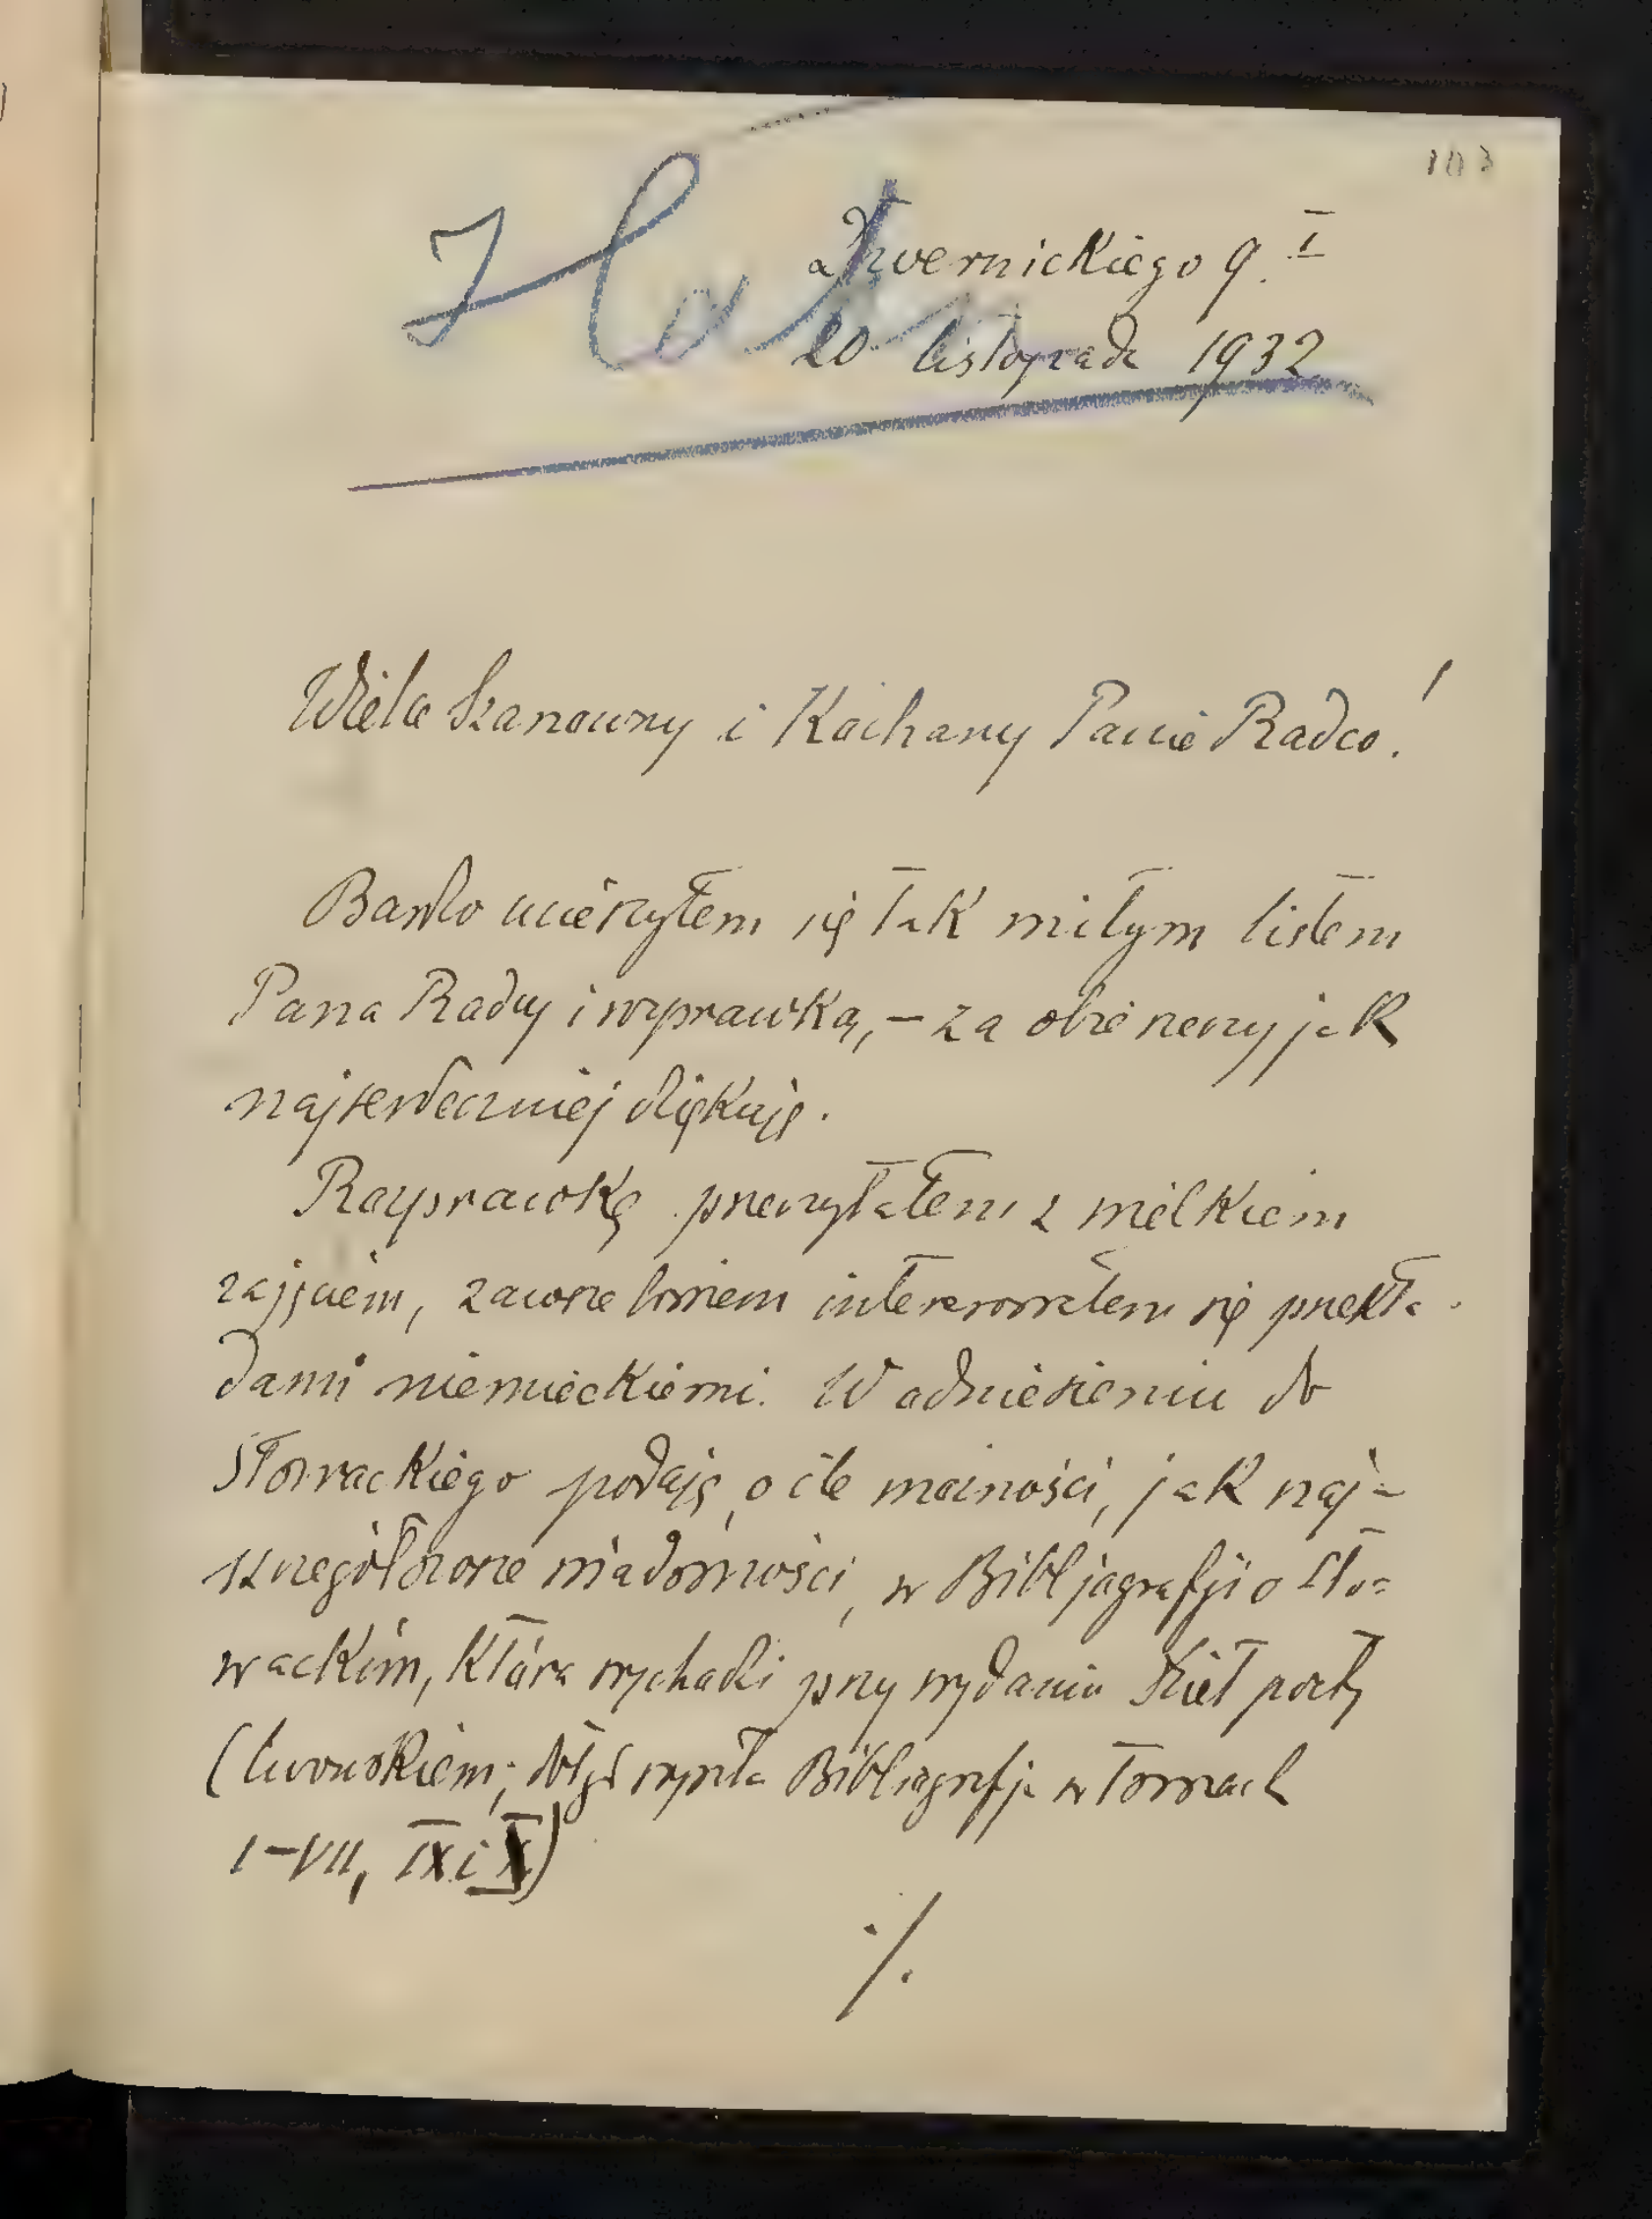 103
Dwernickiego 9. I
20 listopada 1932
Wielce Szanowny i Kochany Panie Radco!
Bardzo ucieszyłem się tak miłym listem
Pana Radcy i rozprawką, – za obie rzeczy jak
najserdeczniej dziękuję.
Rozprawkę przeczytałem z wielkiem
zajęciem, zawsze bowiem interesowałem się przekła-
dami niemieckiemi. W odniesieniu do
Słowackiego podaję, o ile możności, jak naj-
szczegółowsze wiadomości, w Bibljografji o Sło-
wackim, która wychodzi przy wydaniu dzieł poety
(lwowskiem; dotąd wyszła Bibljografja w tomach
I–VII, IX i X)
./.